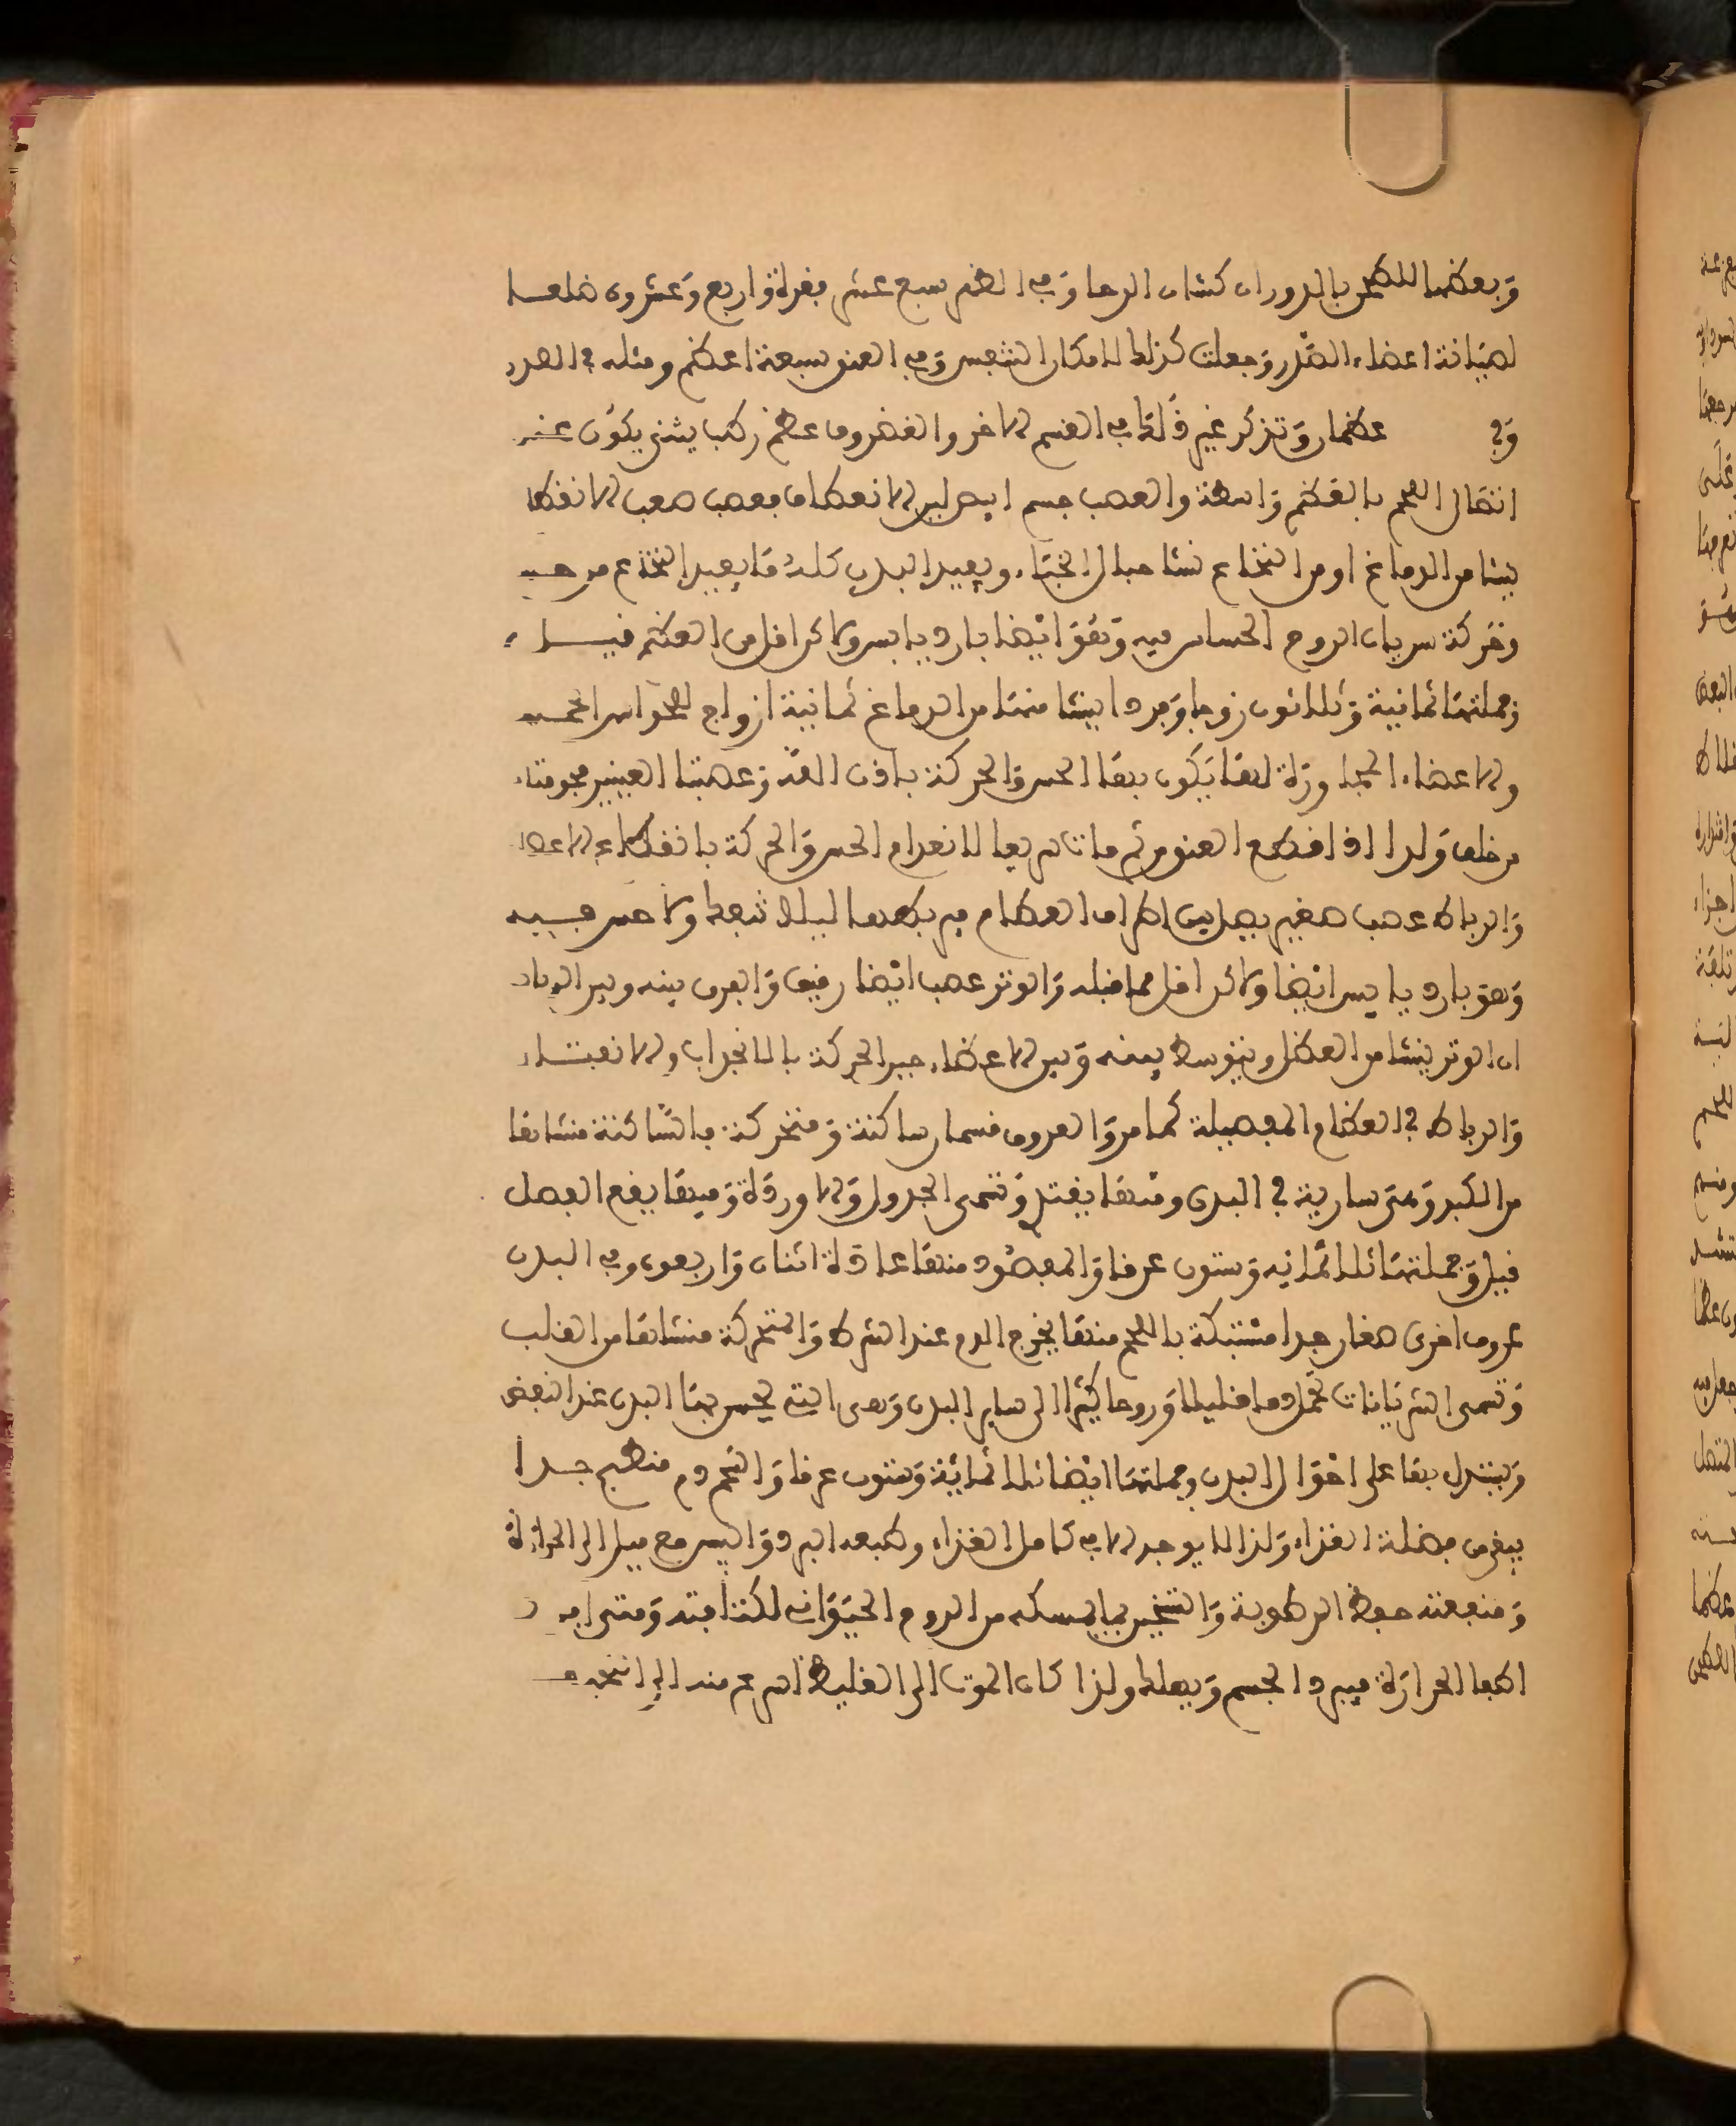 وبعضها للطحن بالدوران كشان الرحا وفي الظهر سبع عشر فقرة واربع وعشرون ضلعا
لصيانة اعضاء الصدر وجعلت كذلك لامكان التنفس وفي العنق سبعة اعظم ومثله في الصدر
وفي عظمان وتذكر غير ذلك في القسم الاخر والغضروف عظم رطب يثنى يكون عند
اتصال اللحم بالعظم واسطة والعصب جسم ابيض لين الانعطاف صعب الانفصال
ينشا من الدماغ او من النخاع نشا حبال الخباء ويفيد البدن كله ما يفيد النخاع من حس
وحركة سريان الروح الحساس فيه وهو ايضا بارد يابس ولاكن اقل من العظم قيل
وجملتها ثمانية وثلاثون زوجا وفردا ينشا منها من الدماغ ثمانية ازواج للحواس الخمس
والاعضاء المجاورة لها يكون بها الحس والحركة باذن الله وعصبتا العينين مجوفتان
من خلف ولذا اذا قطع العنق من ثم مات سريعا لانعدام الحس والحركة بانقطاع الاعصاب
والرباط عصب صغير يصل بين اطراف العظام فيربطها ليلا تنفك ولا حس فيه
وهو بارد يابس ايضا ولاكن اقل مما قبله والوتر عصب ايضا رقيق والفرق بينه وبين الرباط
ان الوتر ينشا من العضل ويتوسط بينه وبين الاعضاء حين الحركة بالانجذاب والانفتـاء
والرباط في العظام المفصلة كما مر والعروق قسمان ساكنة ومتحركة فالساكنة منشاها
من الكبد وهي سارية في البدن ومنها يغتذي وتسمى الجداول والاوردة وفيها يقع الفصد
قيل وجملتها ثلاثمائه وستون عرقا والمفصود منها عادة اثنان واربعون وفي البدن
عروق اخرى صغار جدا مشتبكة باللحم منها يخرج الدم عند الشرط والمتحركة منشاها من القلب
وتسمى الشريانات تحمل دما قليلا وروحا كثيرا الى ساير البدن وهي التي تحس بها اليد عند النبض
ويستدل بها على احوال البدن وجملتها ايضا ثلاثمائة وستون عرقا والشحم دم منطبخ جدا
يبقى من فضلة الغذاء ولذا لا يوجد الا في كامل الغذاء وطبعه البرد واليبس مع ميل الى الحرارة
ومنفعته حفظ الرطوبة والتسخين بما يمسكه من الروح الحيواني لكثافته ومتى افرط
اطفا الحرارة فيبرد الجسم ويهلك ولذا كان الموت الى الغليظ اسرع منه الى النحيف